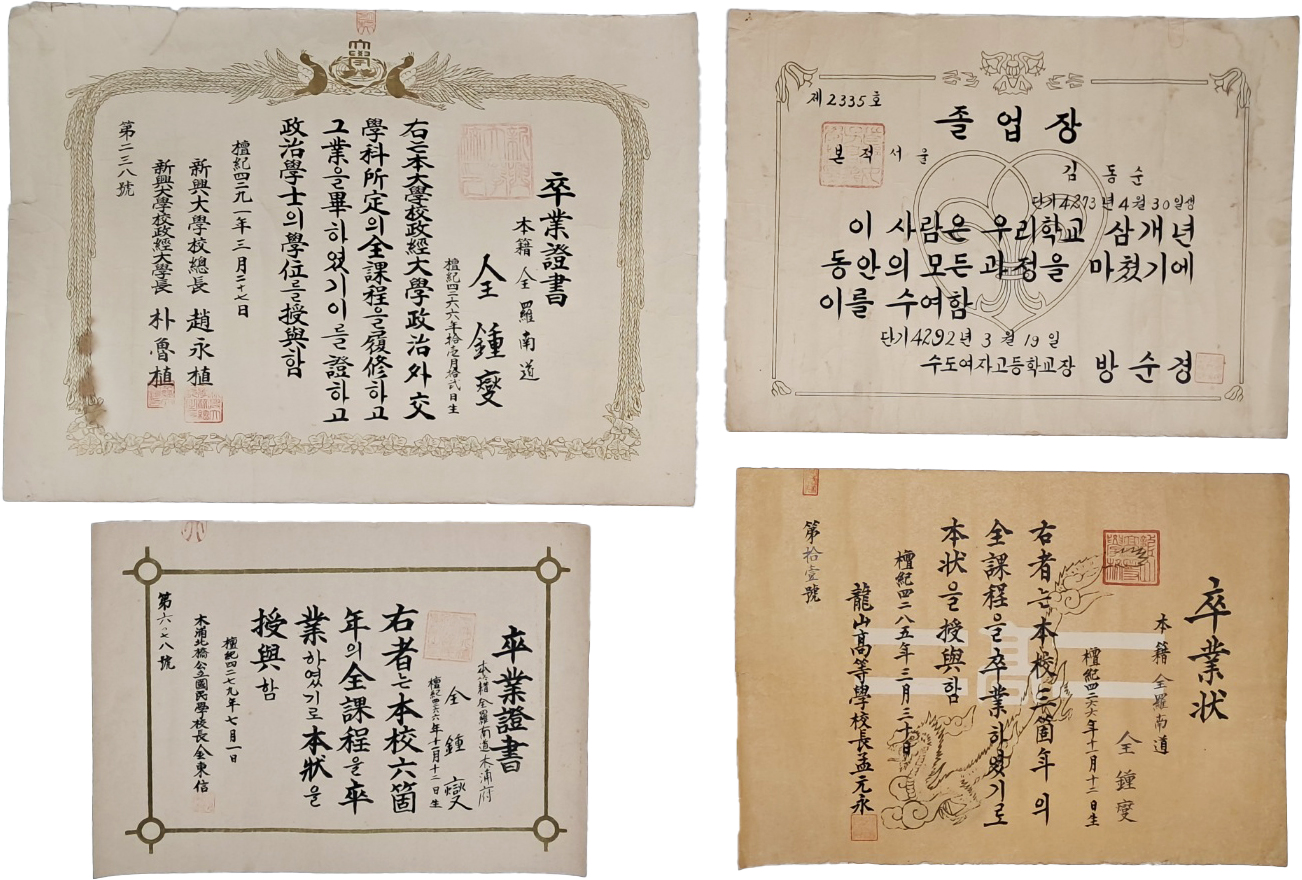 卒業證書
本籍 全羅南道
全鍾燮
檀紀四二六六年拾壱月拾弐日生
右는本大學校政經大學政治外交
學科所定의全課程을履修하고
그業을畢하였기이를證하고
政治學士의學位를授與함
檀紀四二九一年三月二十七日
新興大學校總長 趙永植
新興大學校政經大學長 朴魯植
第二三八號
제2335호
졸업장
본적서울
김동순
단기4273년4월30일생
이 사람은 우리학교 삼개년
동안의 모든 과정을 마쳤기에
이를 수여함
단기4292년 3월 19일
수도여자고등학교장 방순경
卒業證書
本籍 全羅南道木浦府
全鍾燮
檀紀四二六六年十一月十二日生
右者는本校六箇
年의全課程을卒
業하였기로本狀을
授與함
檀紀四二七九年七月一日
木浦北橋公立國民學校長 金東信
第六七八號
卒業狀
本籍 全羅南道
全鍾燮
檀紀四二六六年十一月十二日生
右者는本校三箇年의
全課程을卒業하였기로
本狀을授與함
檀紀四二八五年三月三十日
龍山高等學校長孟元永
第拾壹號
高